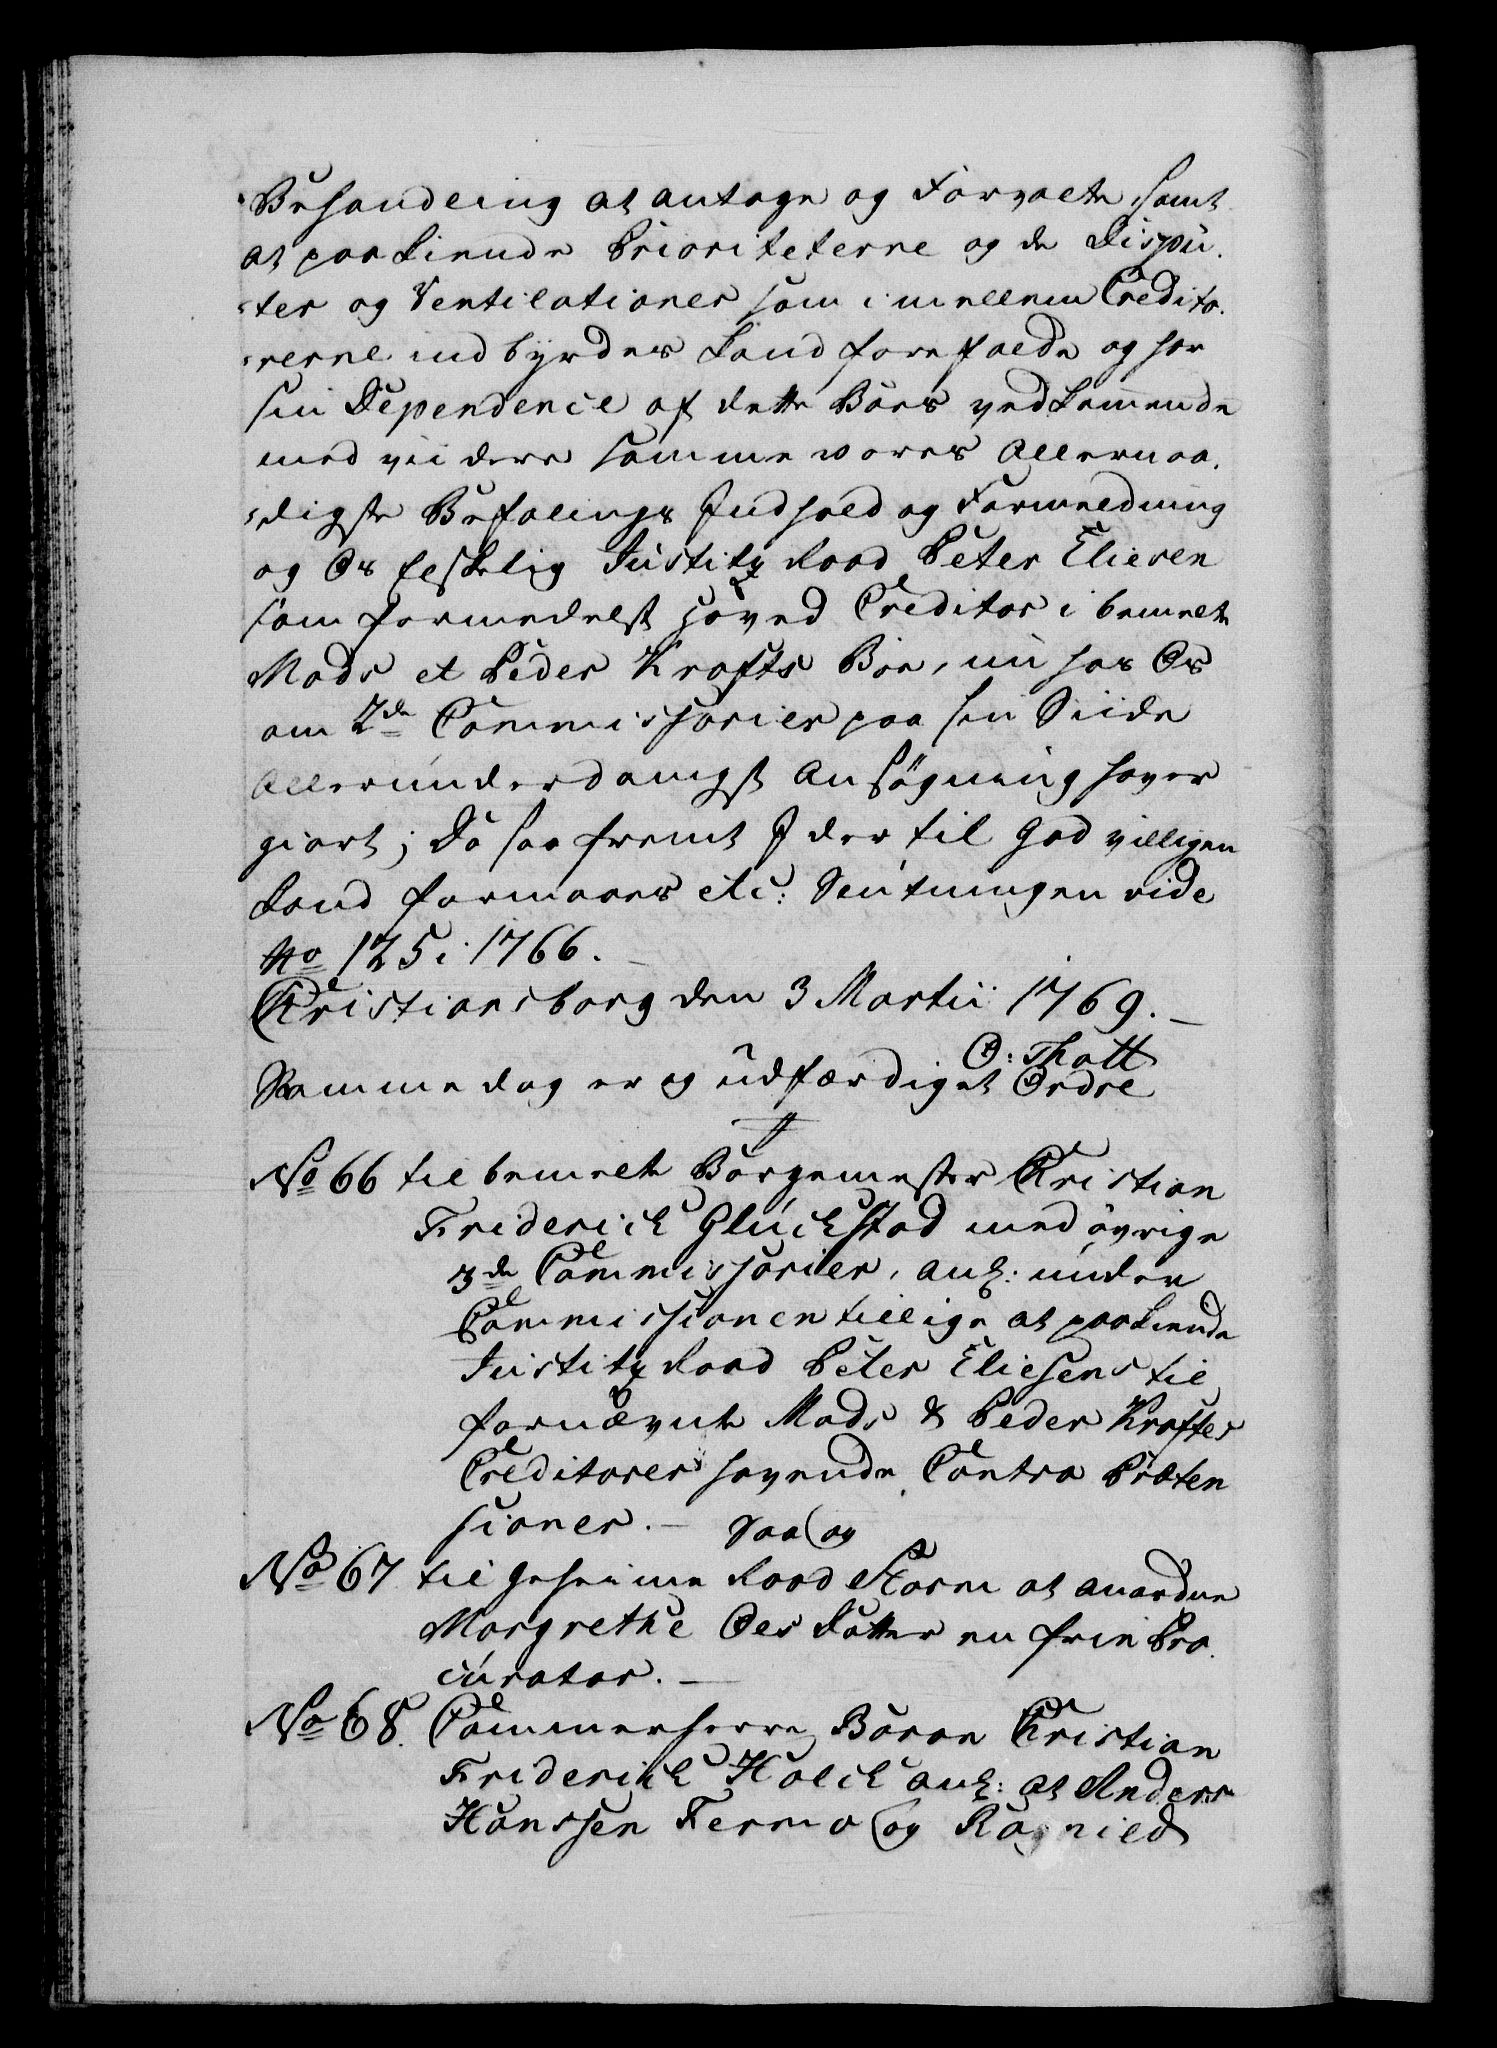 Behandling at antage og Forvalte, samt
at paakiende Prioriteterne og de Dispu-
-ter og Ventilationer som imellem Credito-
-rerne indbyrdes kand forefalde og har
sin Dependence af dette Boes vedkommende
med viidere samme vores Allernaa-
-digste Befalings Indhold og Formeldning
og Os Elskelig Justitz Raad Peter Eliesen
som formedelst hoved Creditor i bemelte
Mads et Peder Krafts Boe, nu hos Os
om 2de Commissarier paa sin Siide
Allerunderdanigst Ansøgning haver
giort; Da saa fremt I der til God villigen
kand formaaes etc: Slutningen vide
No 125 i 1766.
Christiansborg den 3 Martii 1769.
O: Thott
Samme dag er og udfærdiget Ordre
No 66 til bemelte Borgemester Christian
Friderich Glückstad med øvrige
3de Commissarier, ank: under
Commissionen tillige at paakiende
Justitz Raad Peter Eliesens til
fornævnte Mads & Peder Krafts
Creditorer havende Contra Præten
sioner. Saa og
No 67 til geheime Raad Storm at anordne
Margrethe Oes Datter en frie Pro-
curator.
No 68. Cammerherre Baron Christian
Friderich Holck ank: at Anders
Hanssen Fermo og Ragnild